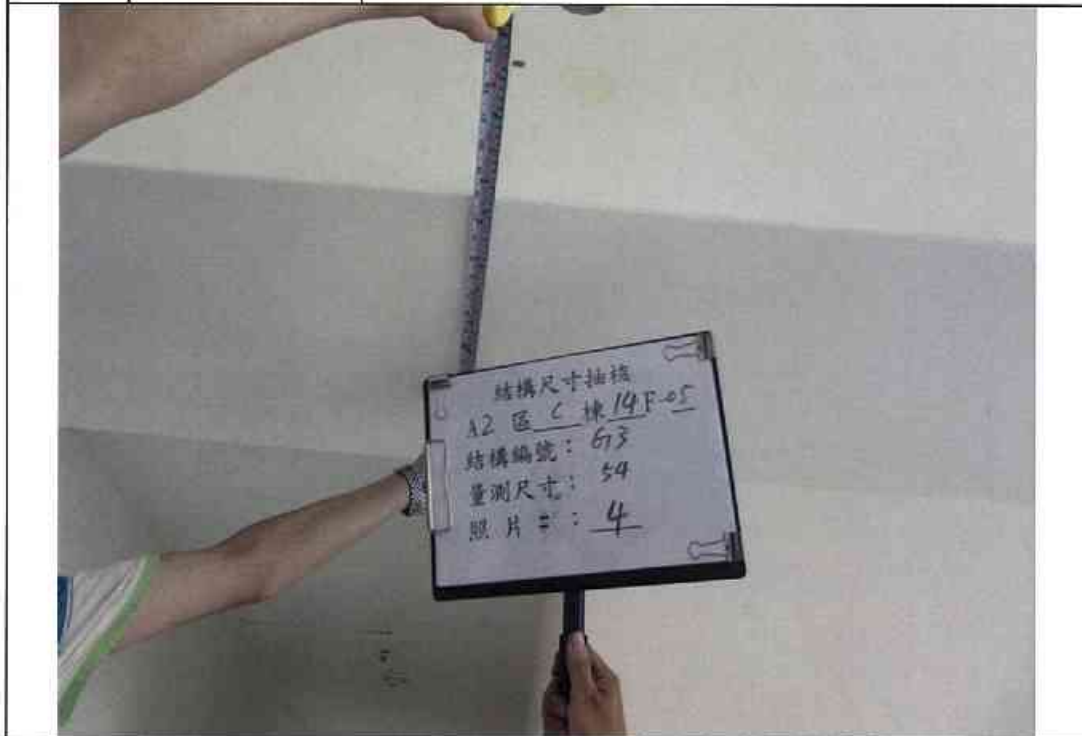 結構尺寸抽檢
A2 區 C 棟 14F-05
結構編號：G3
量測尺寸：54
照片#：4